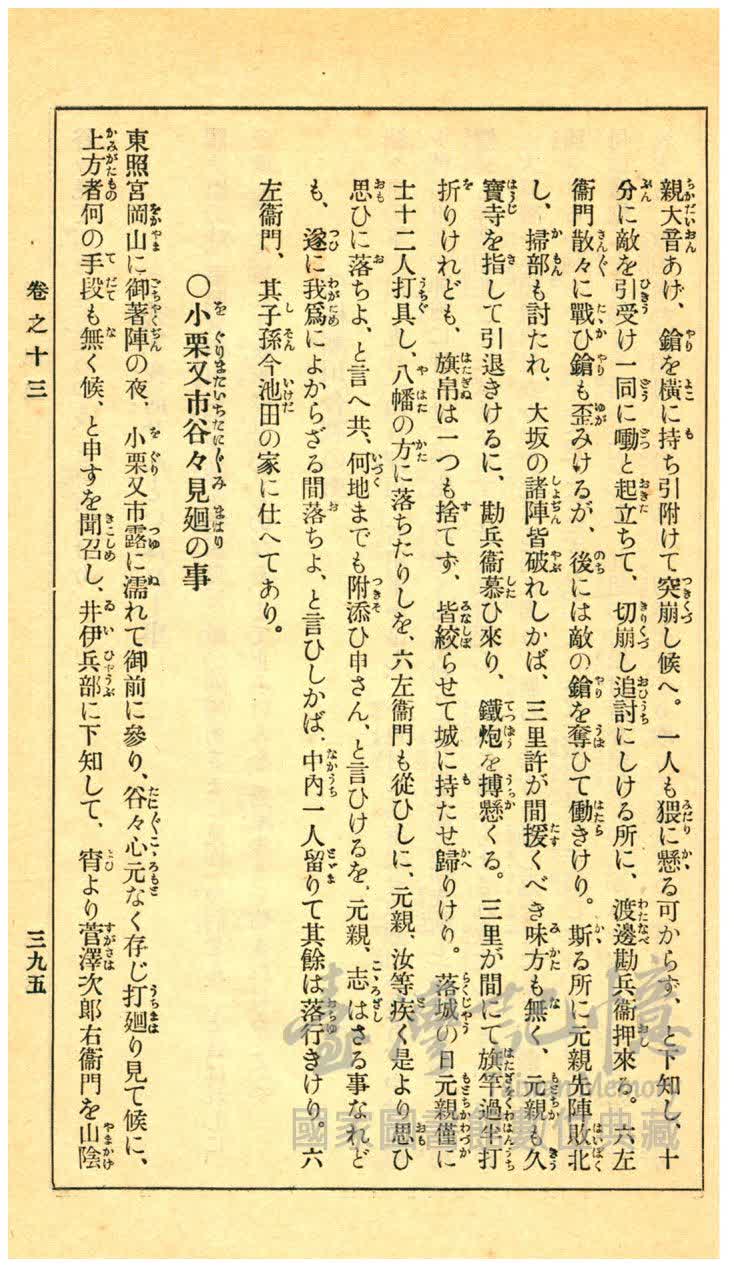 親大音あげ、鎗を橫に持ち引附けて突崩し候へ。一人も猥に懸る可からず、と下知し、十
分に敵を引受け一同に噇と起立ちて、切崩し追討にしける所に、渡邊勘兵衞押來る。六左
衞門散々に戰ひ鎗も歪みけるが、後には敵の鎗を奪ひて働きけり。斯る所に元親先陣敗北
し、掃部も討たれ、大坂の諸陣皆破れしかば、三里許が間援くべき味方も無く、元親も久
寶寺を指して引退きけるに、勘兵衞慕ひ來り、鐵炮を搏懸くる。三里が間にて旗竿過半打
折りけれども、旗帛は一つも捨てず、皆絞らせて城に持たせ歸りけり。落城の日元親僅に
士十二人打具し、八幡の方に落ちたりしを、六左衞門も從ひしに、元親、汝等疾く是より思ひ
思ひに落ちよ、と言へ共、何地までも附添ひ申さん、と言ひけるを、元親、志はさる事なれど
も、遂に我爲によからざる間落ちよ、と言ひしかば、中內一人留りて其餘は落行きけり。六
左衞門、其子孫今池田の家に仕へてあり。
○小栗又市谷々見廻の事
東照宮岡山に御著陣の夜、小栗又市露に濡れて御前に參り、谷々心元なく存じ打廻り見て候に、
上方者何の手段も無く候、と申すを聞召し、井伊兵部に下知して、宵より菅澤次郎右衞門を山陰
卷之十三
三九五
臺灣記憶
Taiwan Memory
國家圖書館數位典藏